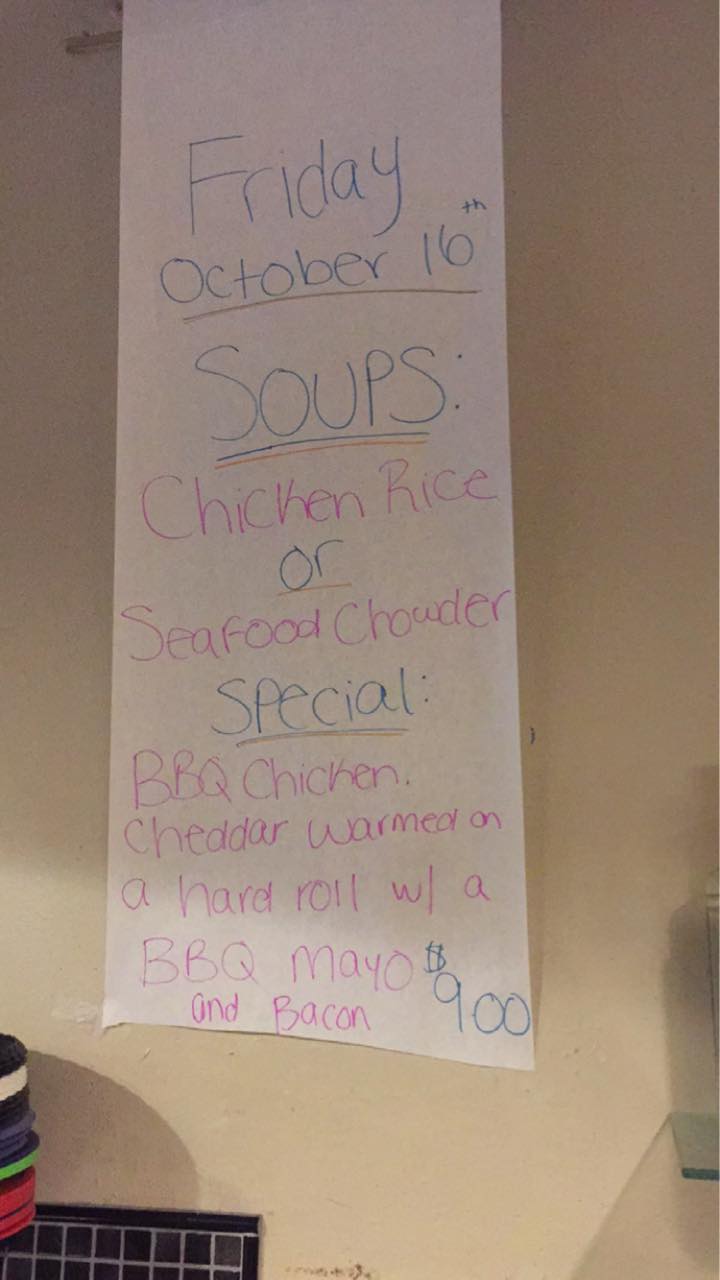 Friday
October 16th
Soups:
Chicken Rice
or
Seafood Chowder
Special:
BBQ Chicken.
Cheddar warmed on
a hard roll w/ a
BBQ Mayo $9.00
and Bacon